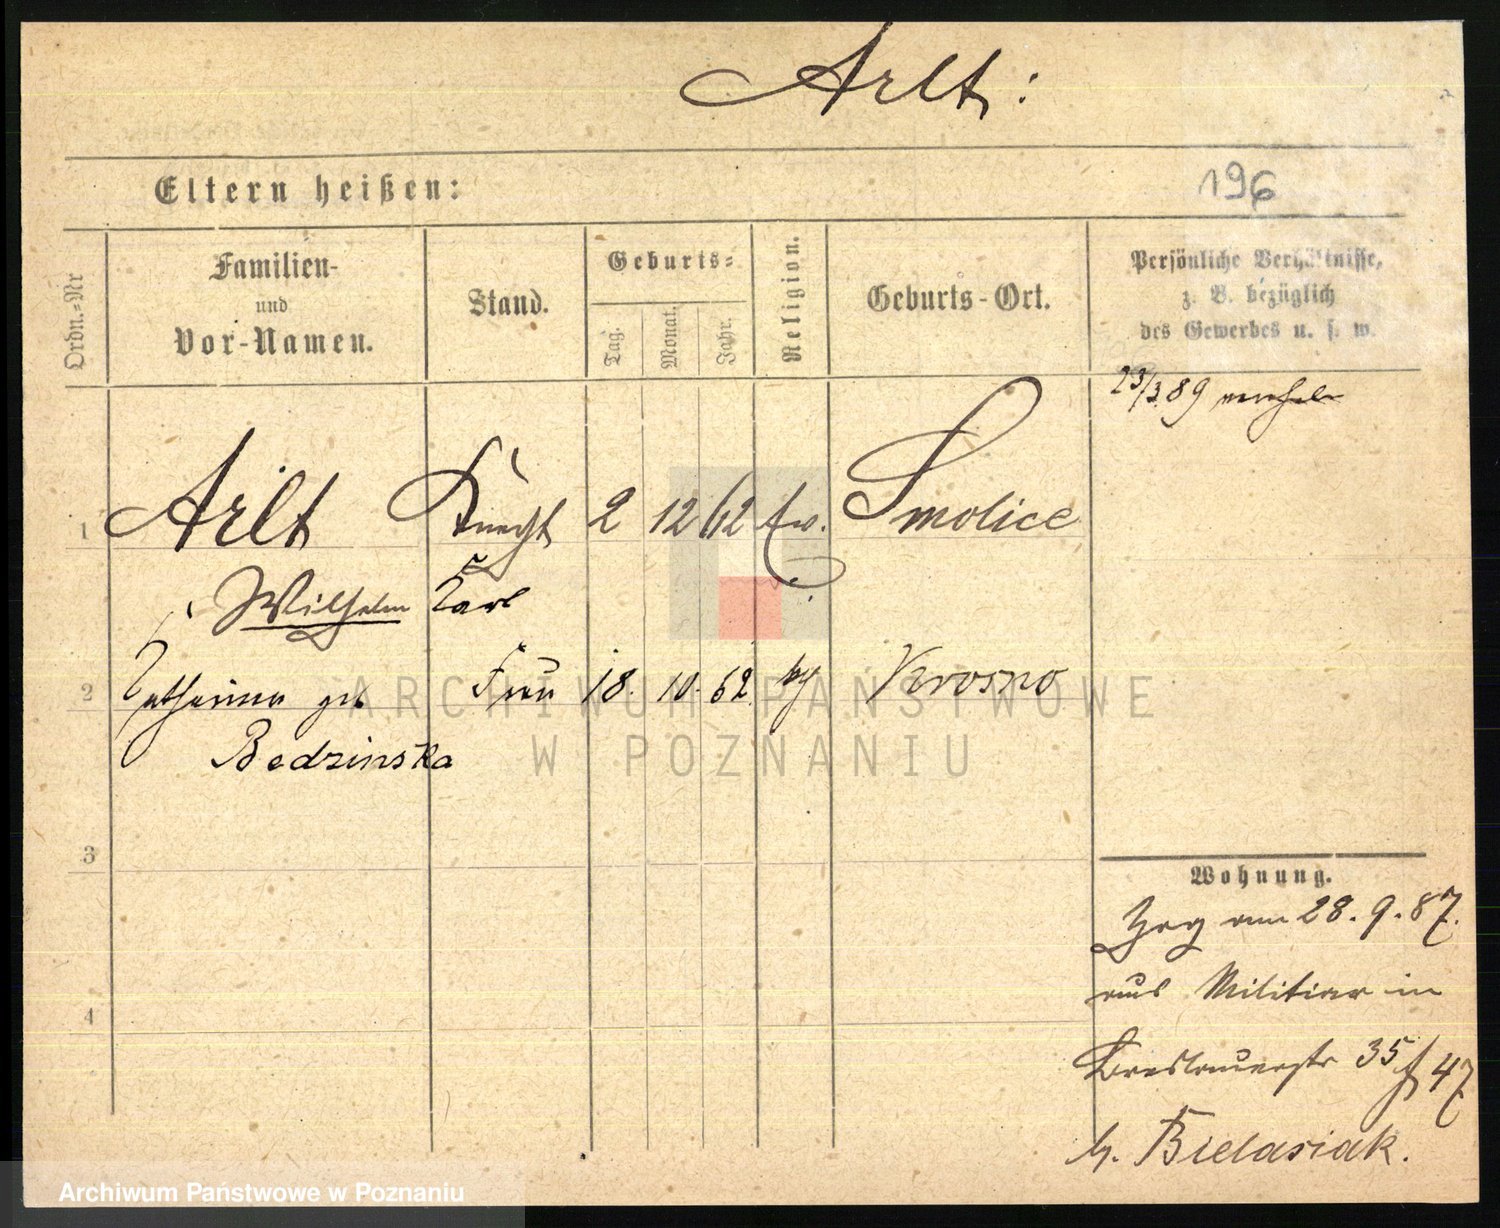 Arlt:
196
Eltern heißen:
Ordn.-Nr
Familien-
und
Vor-Namen.
Stand.
Geburts-
Tag.
Monat.
Jahr.
Religion.
Geburts-Ort.
Persönliche Verhältnisse,
z. B. bezüglich
des Gewerbes u. s. w.
23/3.89
1 Arlt Knecht 2 12 62 Ev. Smolice
Wilhelm Karl
2 Katharina geb Frau 18. 10. 62 kg Krosno
Bedzinska
3
4
Wohnung.
Zzg am 28.9.87.
aus Militiar in
Breslauerstr 35 47
b. Bielasiak.
ARCHIWUM PAŃSTWOWE
W POZNANIU
Archiwum Państwowe w Poznaniu